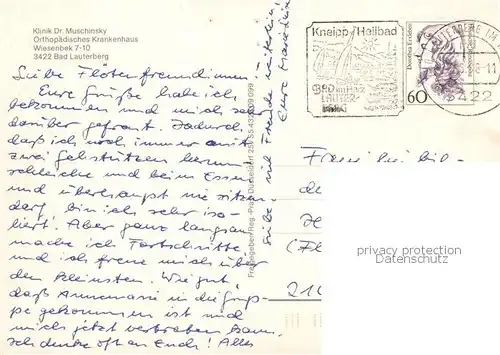 Klinik Dr. Muschinsky
Orthopädisches Krankenhaus
Wiesenbek 7-10
3422 Bad Lauterberg
Liebe Flötenfreundinnen!
Eure Grüße habe ich
bekommen und mich sehr
darüber gefreut. Dadurch
daß ich noch immer mit
zwei Gehstützen herum
schleiche und beim Essen
und überhaupt nie sitzen
darf, bin ich sehr iso-
liert. Aber ganz langsam
mache ich Fortschritte
und ich freue mich über
den kleinsten. Wie gut,
daß Annemarie in die Grup-
pe gekommen ist und
mich jetzt vertreten kann.
Ich denke oft an Euch! Alles
Gute und viel Freude weiterhin!
Eure
Freigegeben Reg.-Präs. Düsseldorf
Kneipp Heilbad
BAD IM HARZ
LAUTER-
BERG
Dorothea Erxleben
60
3422
privacy protection
Datenschutz